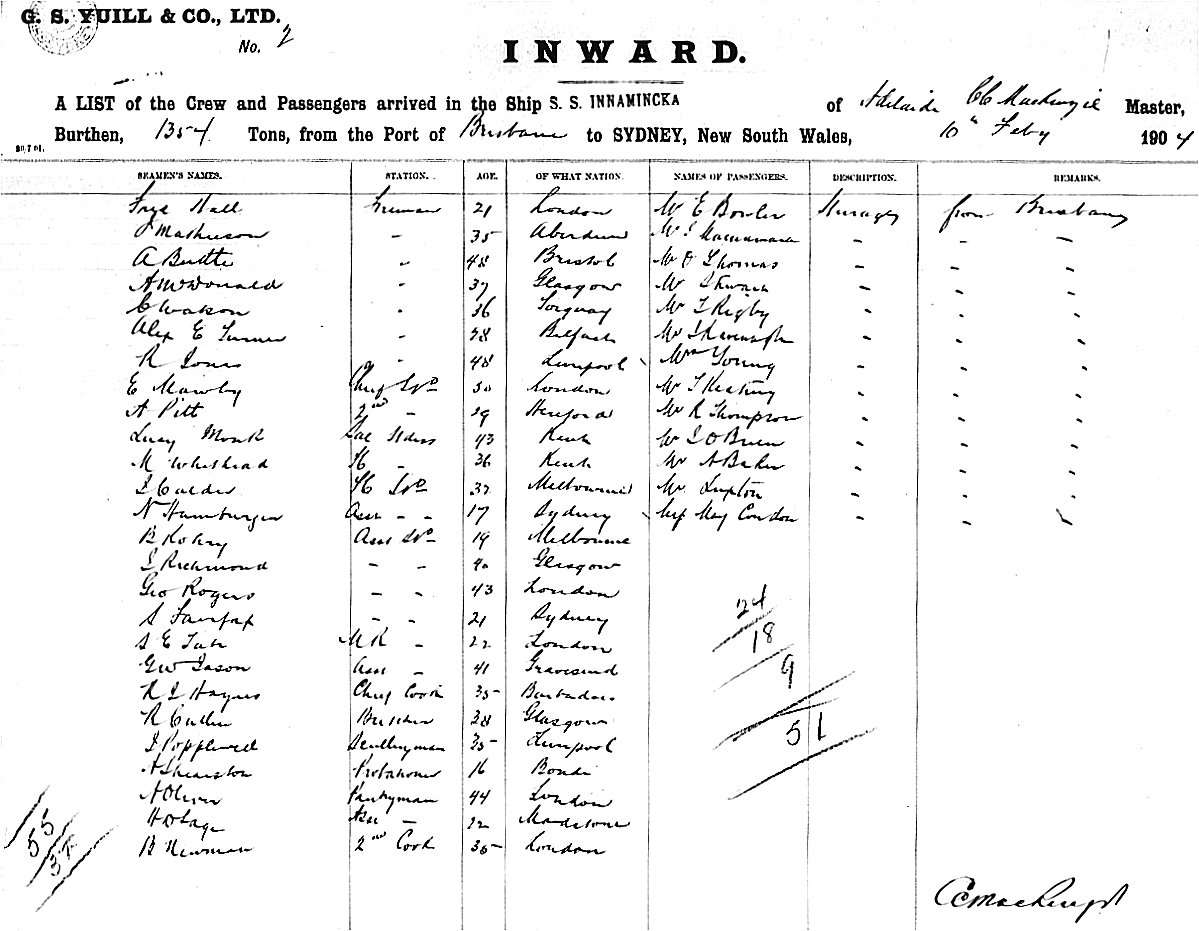 G. S. YUILL & CO., LTD.
No. 2
INWARD.
A LIST of the Crew and Passengers arrived in the Ship S. S. INNAMINCKA of Adelaide CC Mackenzie Master,
Burthen, 1354 Tons, from the Port of Brisbane to SYDNEY, New South Wales, 10th Feby 1904
SEAMEN'S NAMES. STATION. AGE. OF WHAT NATION. NAMES OF PASSENGERS. DESCRIPTION. REMARKS.
Hall Fireman 21 London Mr E Bowler Steerage from Brisbane
J Mathieson - 35 Aberdeen Mr J Macnamara - - -
A - 48 Bristol Mr O Thomas - - -
A McDonald - 37 Glasgow Mr - - -
C Watson - 36 Torquay Mr T Rigby - - -
Alex E Turner - 28 Belfast Mr J Kavanagh - - -
R Jones - 48 Liverpool Mrs Young - - -
E Mawby Chief Swd 30 London Mr T Keating - - -
A Pitt 2nd - 19 Hereford Mr R Thompson - - -
Lucy Monk Sal Stdess 43 Kent Mr J O'Brien - - -
M Whitehead - 36 Kent Mr A Baker - - -
J Calder Swd 32 Melbourne Mr Lupton - - -
N Hamburger Asst - - 17 Sydney Miss May Condon - - -
B Asst Swd 19 Melbourne
J Richmond - - 40 Glasgow
Geo Rogers - - 43 London
S Fairfax - - 21 Sydney
S E - 22 London
GW Jason Asst - 41 Gravesend
R J Haynes Chief Cook 35 Barbados
R Butcher 28 Glasgow
J Popplewell Sculleryman 25 Liverpool
A Shearston Probationer 16 Bondi
A Oliver Pantryman 44 London
Asst - 22 Maidstone
B Newman 2nd Cook 35 London
24
18
9
51
55
CC Mackenzie